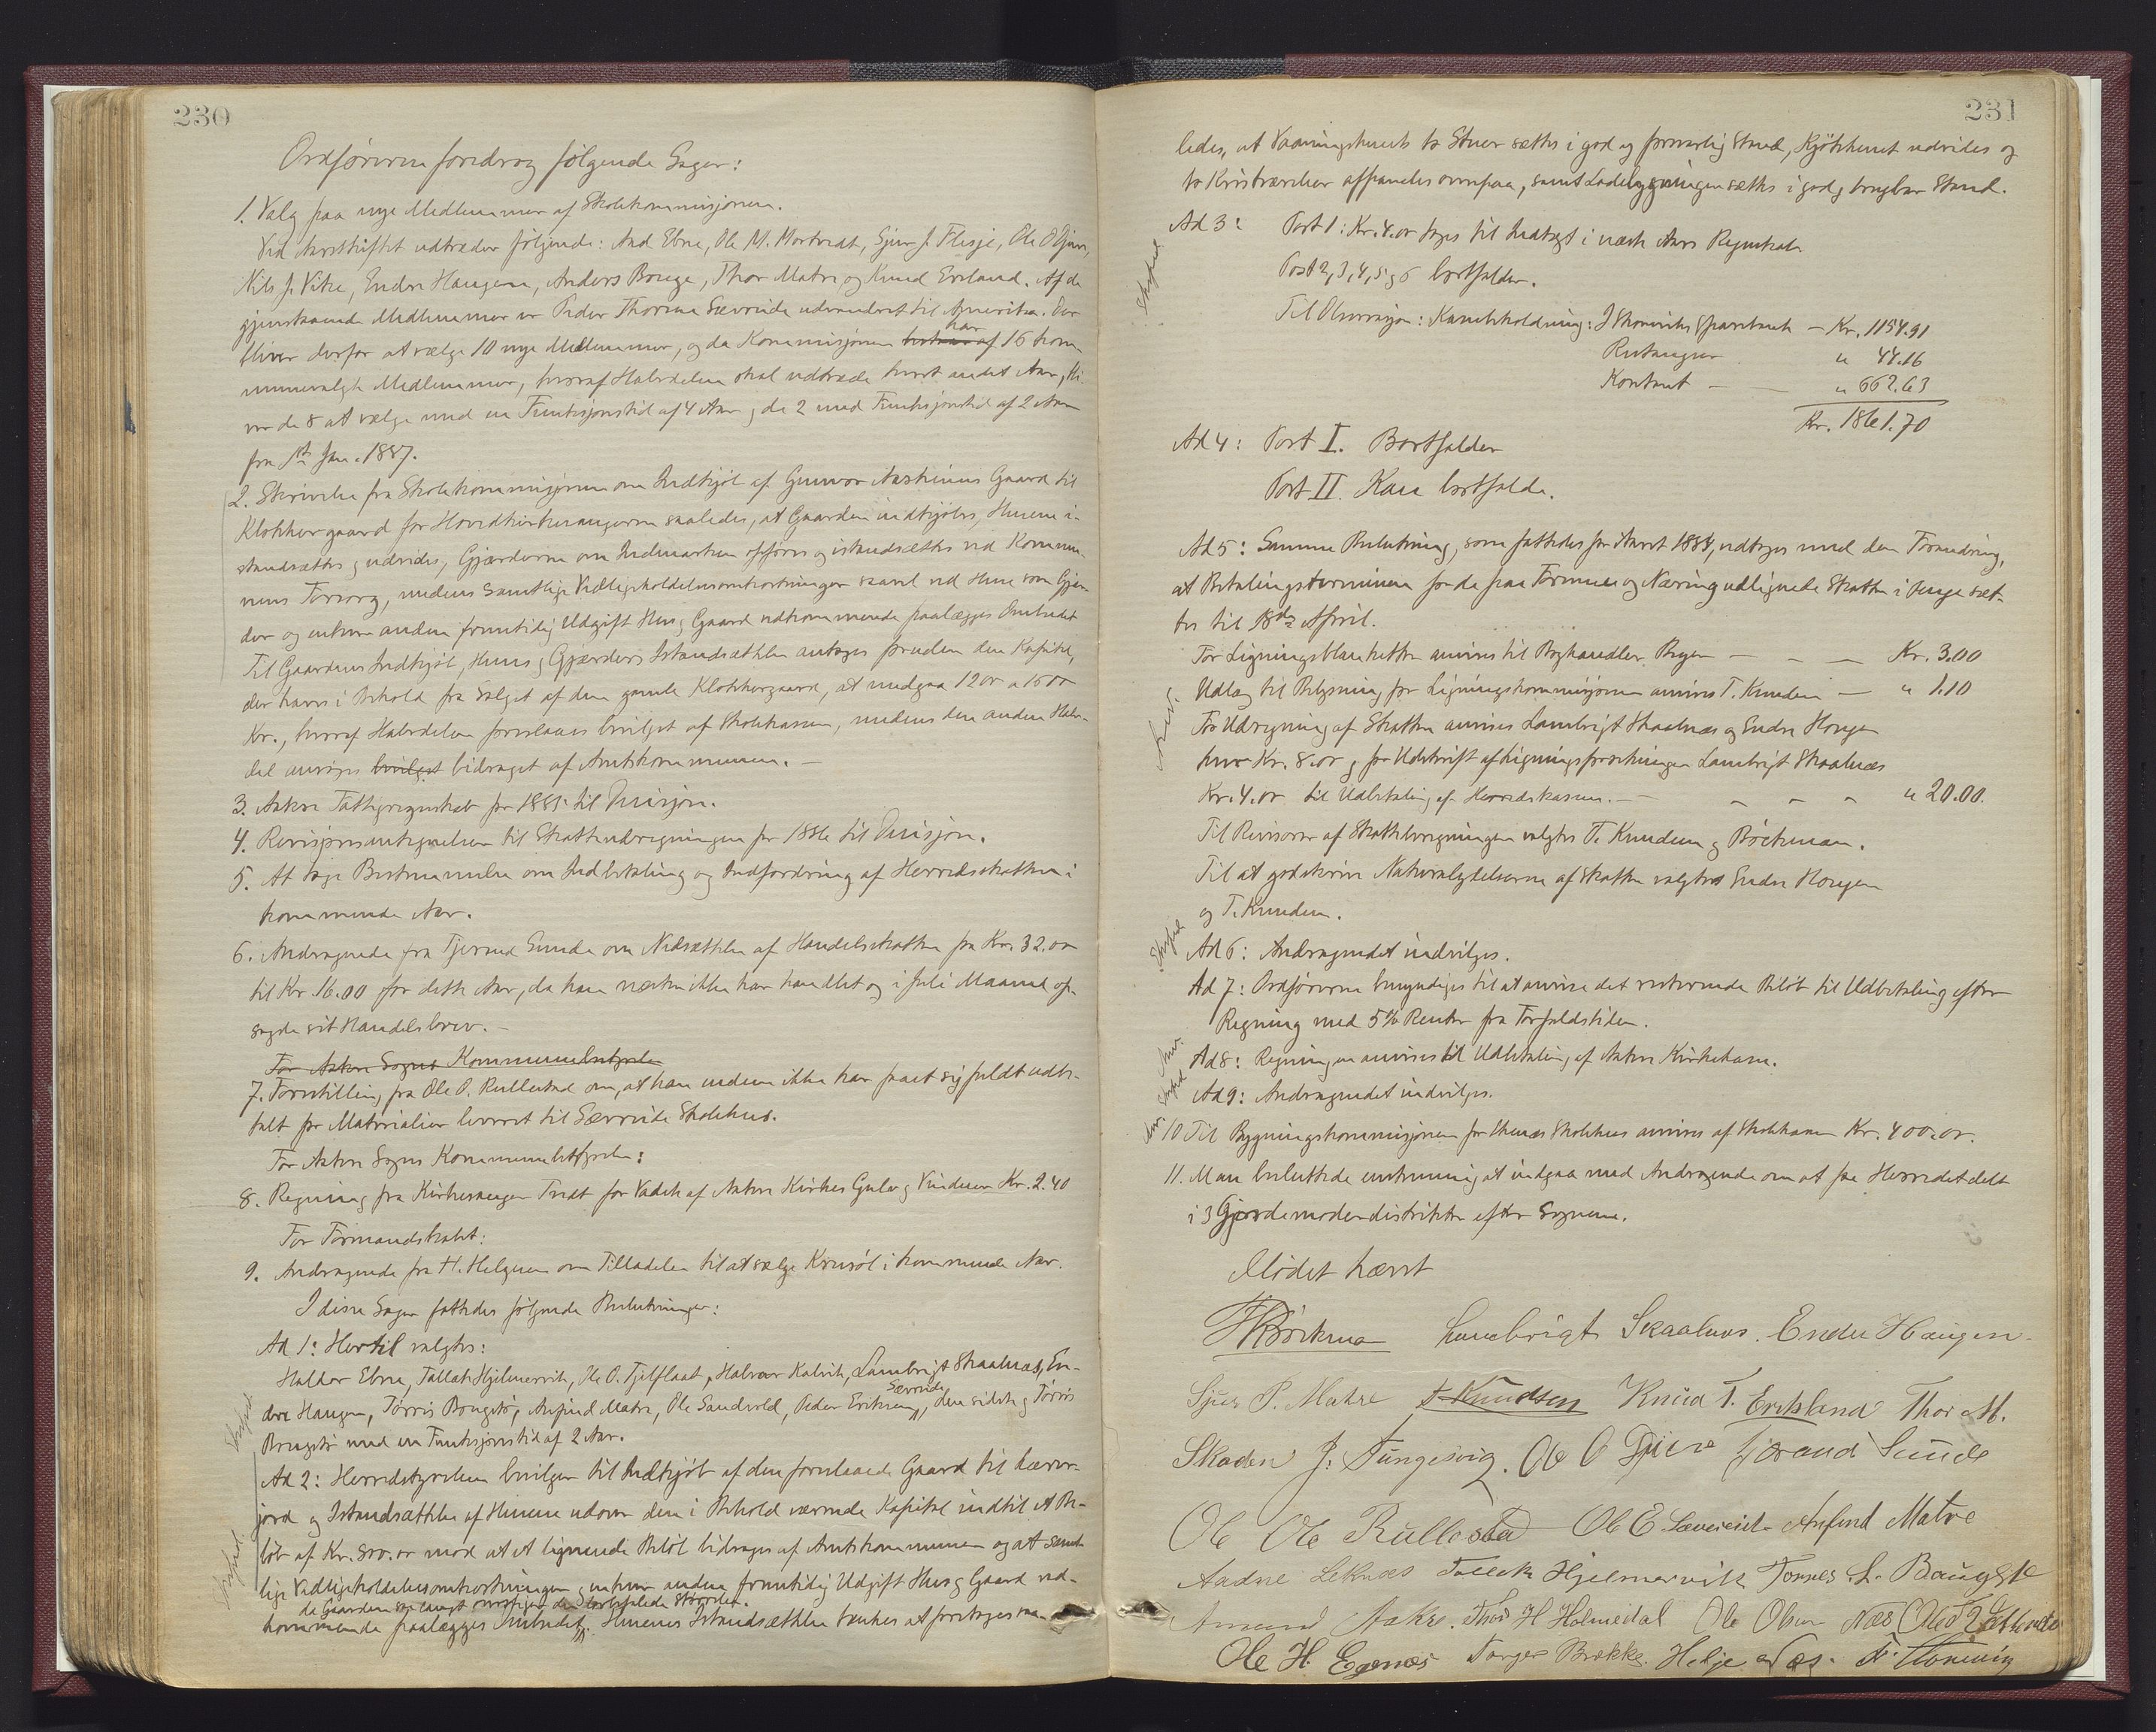 230
Ordføreren foredrog følgende Sager:
1. Valg paa nye Medlemmer af Skolekommisjonen.
Ved Aarsskiftet udtræder følgende: And Ebne, Ole M. Mortvedt, Sjur J. Flesje, Ole O Tjern,
Nils J. Vike, Endre Haugen, Anders Bauge, Thor Matre og Knud Ersland. Af de
gjenstaaende Medlemmer er Peder Thorsen Sævreide udvandret til Amerika. Der
bliver derfor at vælge 10 nye Medlemmer, og da Kommisjonen bestaar har af 16 kom
munevalgte Medlemmer, hvoraf Halvdelen skal udtræde hvert andet Aar, bli
ver de 8 at vælge med en Funksjonstid af 4 Aar og de 2 med Funksjonstid af 2 Aar
fra 1ste Jan. 1887.
2. Skrivelse fra Skolekommisjonen om Indkjøb af Gunvor Aastheims Gaard til
Klokkergaard for Hovedkirkesangeren saaledes, at Gaarden indkjøbes, Husene i-
standsættes og udvides, Gjærderne om Indmarken opføres og istandsættes ved Kommu-
nens Forsorg, medens samtlige Vedligeholdelsesomkostninger saavel ved Huse som Gjær
der og enhver anden fremtidig Udgift Hus og Gaard vedkommende paalægges Ombudet
Til Gaardens Indkjøb, Huses og Gjærders Istandsættelse antages foruden den Kapital,
der haves i Behold fra Salget af den gamle Klokkergaard, at medgaa 1200 a 1500
Kr., hvoraf Halvdelen foreslaaes bevilget af Skolekassen, medens den anden Halv-
del ansøges bevilget bidraget af Amtskommunen. —
3. Aakre Fattigregnskab for 1885 til Decisjon.
4. Revisjonsantegnelser til Skatteberegningen for 1886 til Decisjon.
5. At tage Bestemmelse om Indbetaling og Indfordring af Herredsskatten i
kommende Aar.
6. Andragende fra Tjerand Sunde om Nedsættelse af Handelsskatten fra Kr. 32.00
til Kr. 16.00 for dette Aar, da han næsten ikke har handlet og i Juli Maaned op-
sagde sit Handelsbrev. —
For Aakre Sogns Kommunebestyrelse
7. Forestilling fra Ole O. Rullestad om, at han endnu ikke har faaet sig fuldt udbe-
talt for Materialier leveret til Sævreide Skolehus.
For Aakre Sogns Kommunebestyrelse:
8. Regning fra Kirkesanger Tvedt for Vadsk af Aakre Kirkes Gulv og Vinduer Kr. 2.40
For Formandskabet:
9. Andragende fra H. Helgesen om Tilladelse til at sælge Krusøl i kommende Aar.
I disse Sager fattedes følgende Beslutninger:
Ad 1: Hertil valgtes:
Haldor Ebne, Tallak Hjelmervik, Ole O. Fjelflaat, Halvor Kalvik, Lambrigt Skaalnæs, En-
dre Haugen, Tørris Baugstø, Anfind Matre, Ole Sandvold, Peder Eriksen Sævreide, den sidste og Tørris
Baugstø med en Funksjonstid af 2 Aar.
Ad 2: Herredsstyrelsen bevilger til Indkjøb af den foreslaaede Gaard til Lærer-
jord og Istandsættelse af Husene udover den i Behold værende Kapital indtil et Be-
løb af Kr. 800.00 mod at et lignende Beløb bidrages af Amtskommunen og at samt-
lige Vedligeholdelsesomkostninger og enhver anden fremtidig Udgift Hus og Gaard ved-
da Gaarden saa langt overstiger den lovbefalede Størrelse.
kommende paalægges Ombudet. Husenes Istandsættelse tænkes at foretages saa-
231
ledes, at Vaaningshusets to Stuer sættes i god og forsvarlig Stand, Kjøkkenet udvides og
to Kvistværelser afpanels ovenpaa, samt Ladebygningen sættes i god og brugbar Stand.
Ad 3: Post 1: Kr. 4.00 tages til Indtægt i næste Aars Regnskab.
Post 2, 3, 4, 5 og 6 bortfalder.
Til Observasjon: Kassebeholdning: I Skonevik Sparebank — Kr. 1154.91
Restanser " 44.16
Kontant — — " 662.63
Kr. 1861.70
Ad 4: Post I. Bortfalder
Post II. Kan bortfalde.
Ad 5: Samme Beslutning, som fattedes for Aaret 1884, vedtoges med den Forandring,
at Betalingsterminen for de paa Formue og Næring udlignede Skatter i Penge sæt-
tes til 18de April.
For Ligningsblanketter anvises til Boghandler Beyer — — — Kr. 3.00
Udlæg til Belysning for Ligningskommisjonen anvises T. Knudsen — " 1.10
For Udregning af Skatten anvises Lambrigt Skaalnæs og Endre Haugen
hver Kr. 8.00 og for Udskrift af Ligningsforretningen Lambrigt Skaalnæs
Kr. 4.00 til Udbetaling af Herredskassen. — " 20.00.
Til Revisorer af Skatteberegningen valgtes T. Knudsen og Böckman.
Til at godskrive Naturalydelserne af Skatten valgtes Endre Haugen
og T. Knudsen.
Ad 6: Andragendet indvilges.
Ad 7: Ordføreren bemyndiges til at anvise det resterende Beløb til Udbetaling efter
Regning med 5% Renter fra Forfaldstiden.
Ad 8: Regningen anvises til Udbetaling af Aakre Kirkekasse.
Ad 9: Andragendet indvilges.
10 Til Bygningskommisjonen for Ænes Skolehus anvises af Skolekassen Kr. 400.00.
11. Man besluttede enstemmig at indgaa med Andragende om at faa Herredet delt
i 3 Gjordemoderdistrikter efter Sognene.
Mødet hævet
Böckman Lambrigt Skaalnæs. Endre Haugen.
Sjur P. Matre T Knudsen Knud T. Eriksland Thor M.
Skaden J. Tungesvig. Ole O Tjern Tjerand Sunde
Ole Ole Rullestad Ole E Sævereide Anfind Matre
Aadne Leknæs Tallak Hjelmervik Tørres L. Baugstø
Amund Aakre. Thor H Holmedal Ole Olsen Næs
Ole H. Egenæs Torger Brekke. Helje Næs.